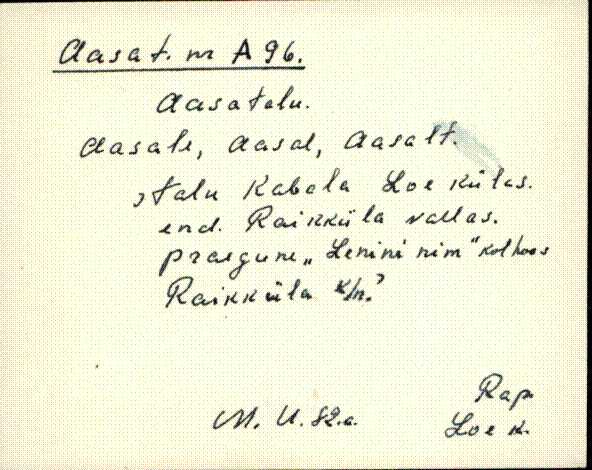 Aasat. nr A 96.
Aasatalu.
Aasale, Aasal, Aasalt.
,talu Kabala Loe külas.
end. Raikküla vallas.
praegune „Lenini nim" kolhoos
Raikküla k/n.'
Rap.
M. U. 82.a.
Loe k.